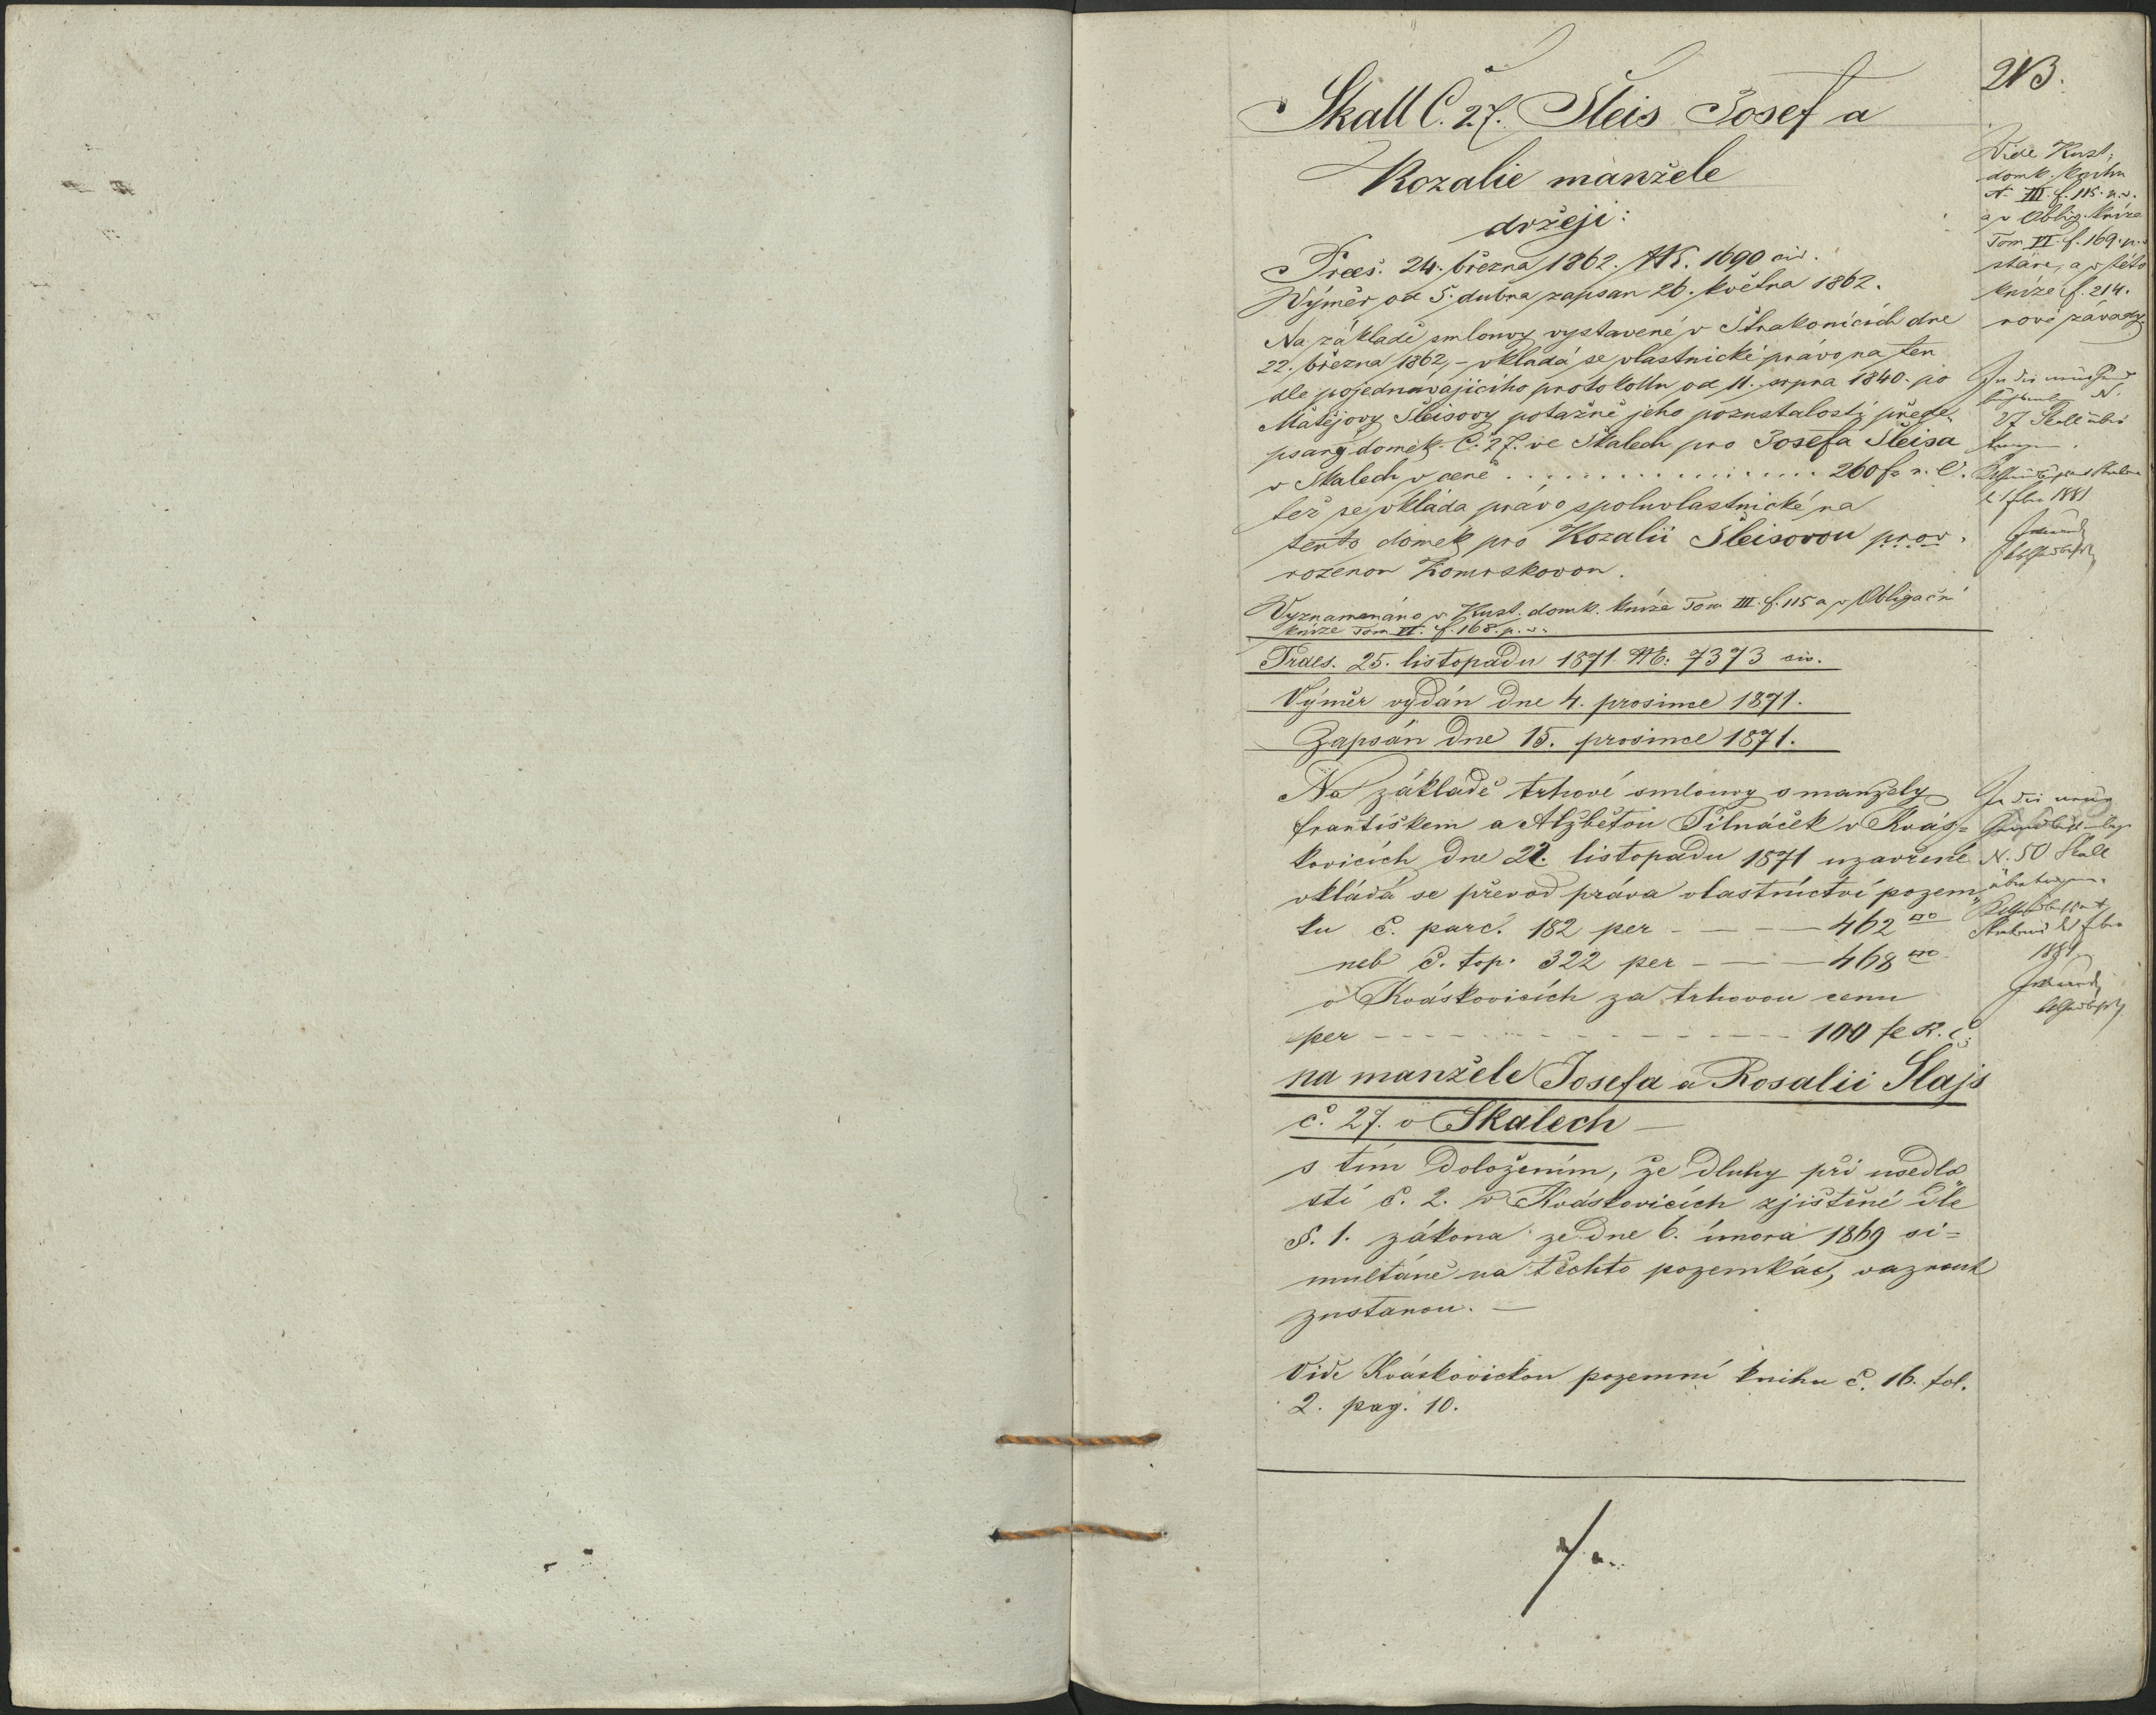 213.
Skall Č. 27. Šleis Josef a
Rozalie manžele
držeji:
Præs. 24. března 1862. NE. 1690 civ.
Výměr od 5. dubna zapsan 26. května 1862.
Na základě smlouvy vystavené v Strakonicích dne
22. března 1862, – vkladá se vlastnické právo na ten
dle pojednávajícího protokollu od 11. srpna 1840. po
Matějovy Šleisovy potažně jeho pozustalosti přede-
psaný domek Č. 27. ve Skalech pro Josefa Šleisa
v Skalech v ceně . . . . . . . . . . . . . . . . 260 f. r. č.
též se vkláda právo spoluvlastnické na
tento domek pro Rozalii Šleisovou prov.
rozenou Komrskovou.
Vyznamenáno v Kust. domk. knize Tom III. f. 115 a v Obligační
knize Tom VI. f. 168. p. v.
Praes. 25. listopadu 1871. NE. 7373 civ.
Výměr vydán dne 4. prosince 1871.
Zapsán dne 15. prosince 1871.
Na základě trhové smlouvy s manžely
Františkem a Alžbětou Pilnáček v Kvás=
kovicích dne 22. listopadu 1871 uzavřené
vkládá se převod práva vlastnictví pozem„
ku č. parc. 182 per – – – – 462
neb č. top. 322 per – – – – 468
v Kváskovicích za trhovou cenu
per – – – – – – – – – – – 100 R. č.
na manžele Josefa a Rosalii Slajs
č. 27. v Skalech –
s tím doložením, že dluhy při usedlo„
sti č. 2. v Kváskovicích zjištěné dle
§. 1. zákona ze dne 6. února 1869 si=
multáně na těchto pozemkách váznout
zustanou. –
Vide Kváskovickou pozemní knihu č. 16. fol.
2. pag. 10.
Vide Kust.
domk. knihu
N. III. f. 115. n. v.
a v Oblig. knize
Tom VI. f. 169. p. v
stare, a v této
knize f. 214.
nové závady
In die neue
N.
27 Skall über
tragen.
1881
In die neue
N. 50 Skall
übertragen.
1881